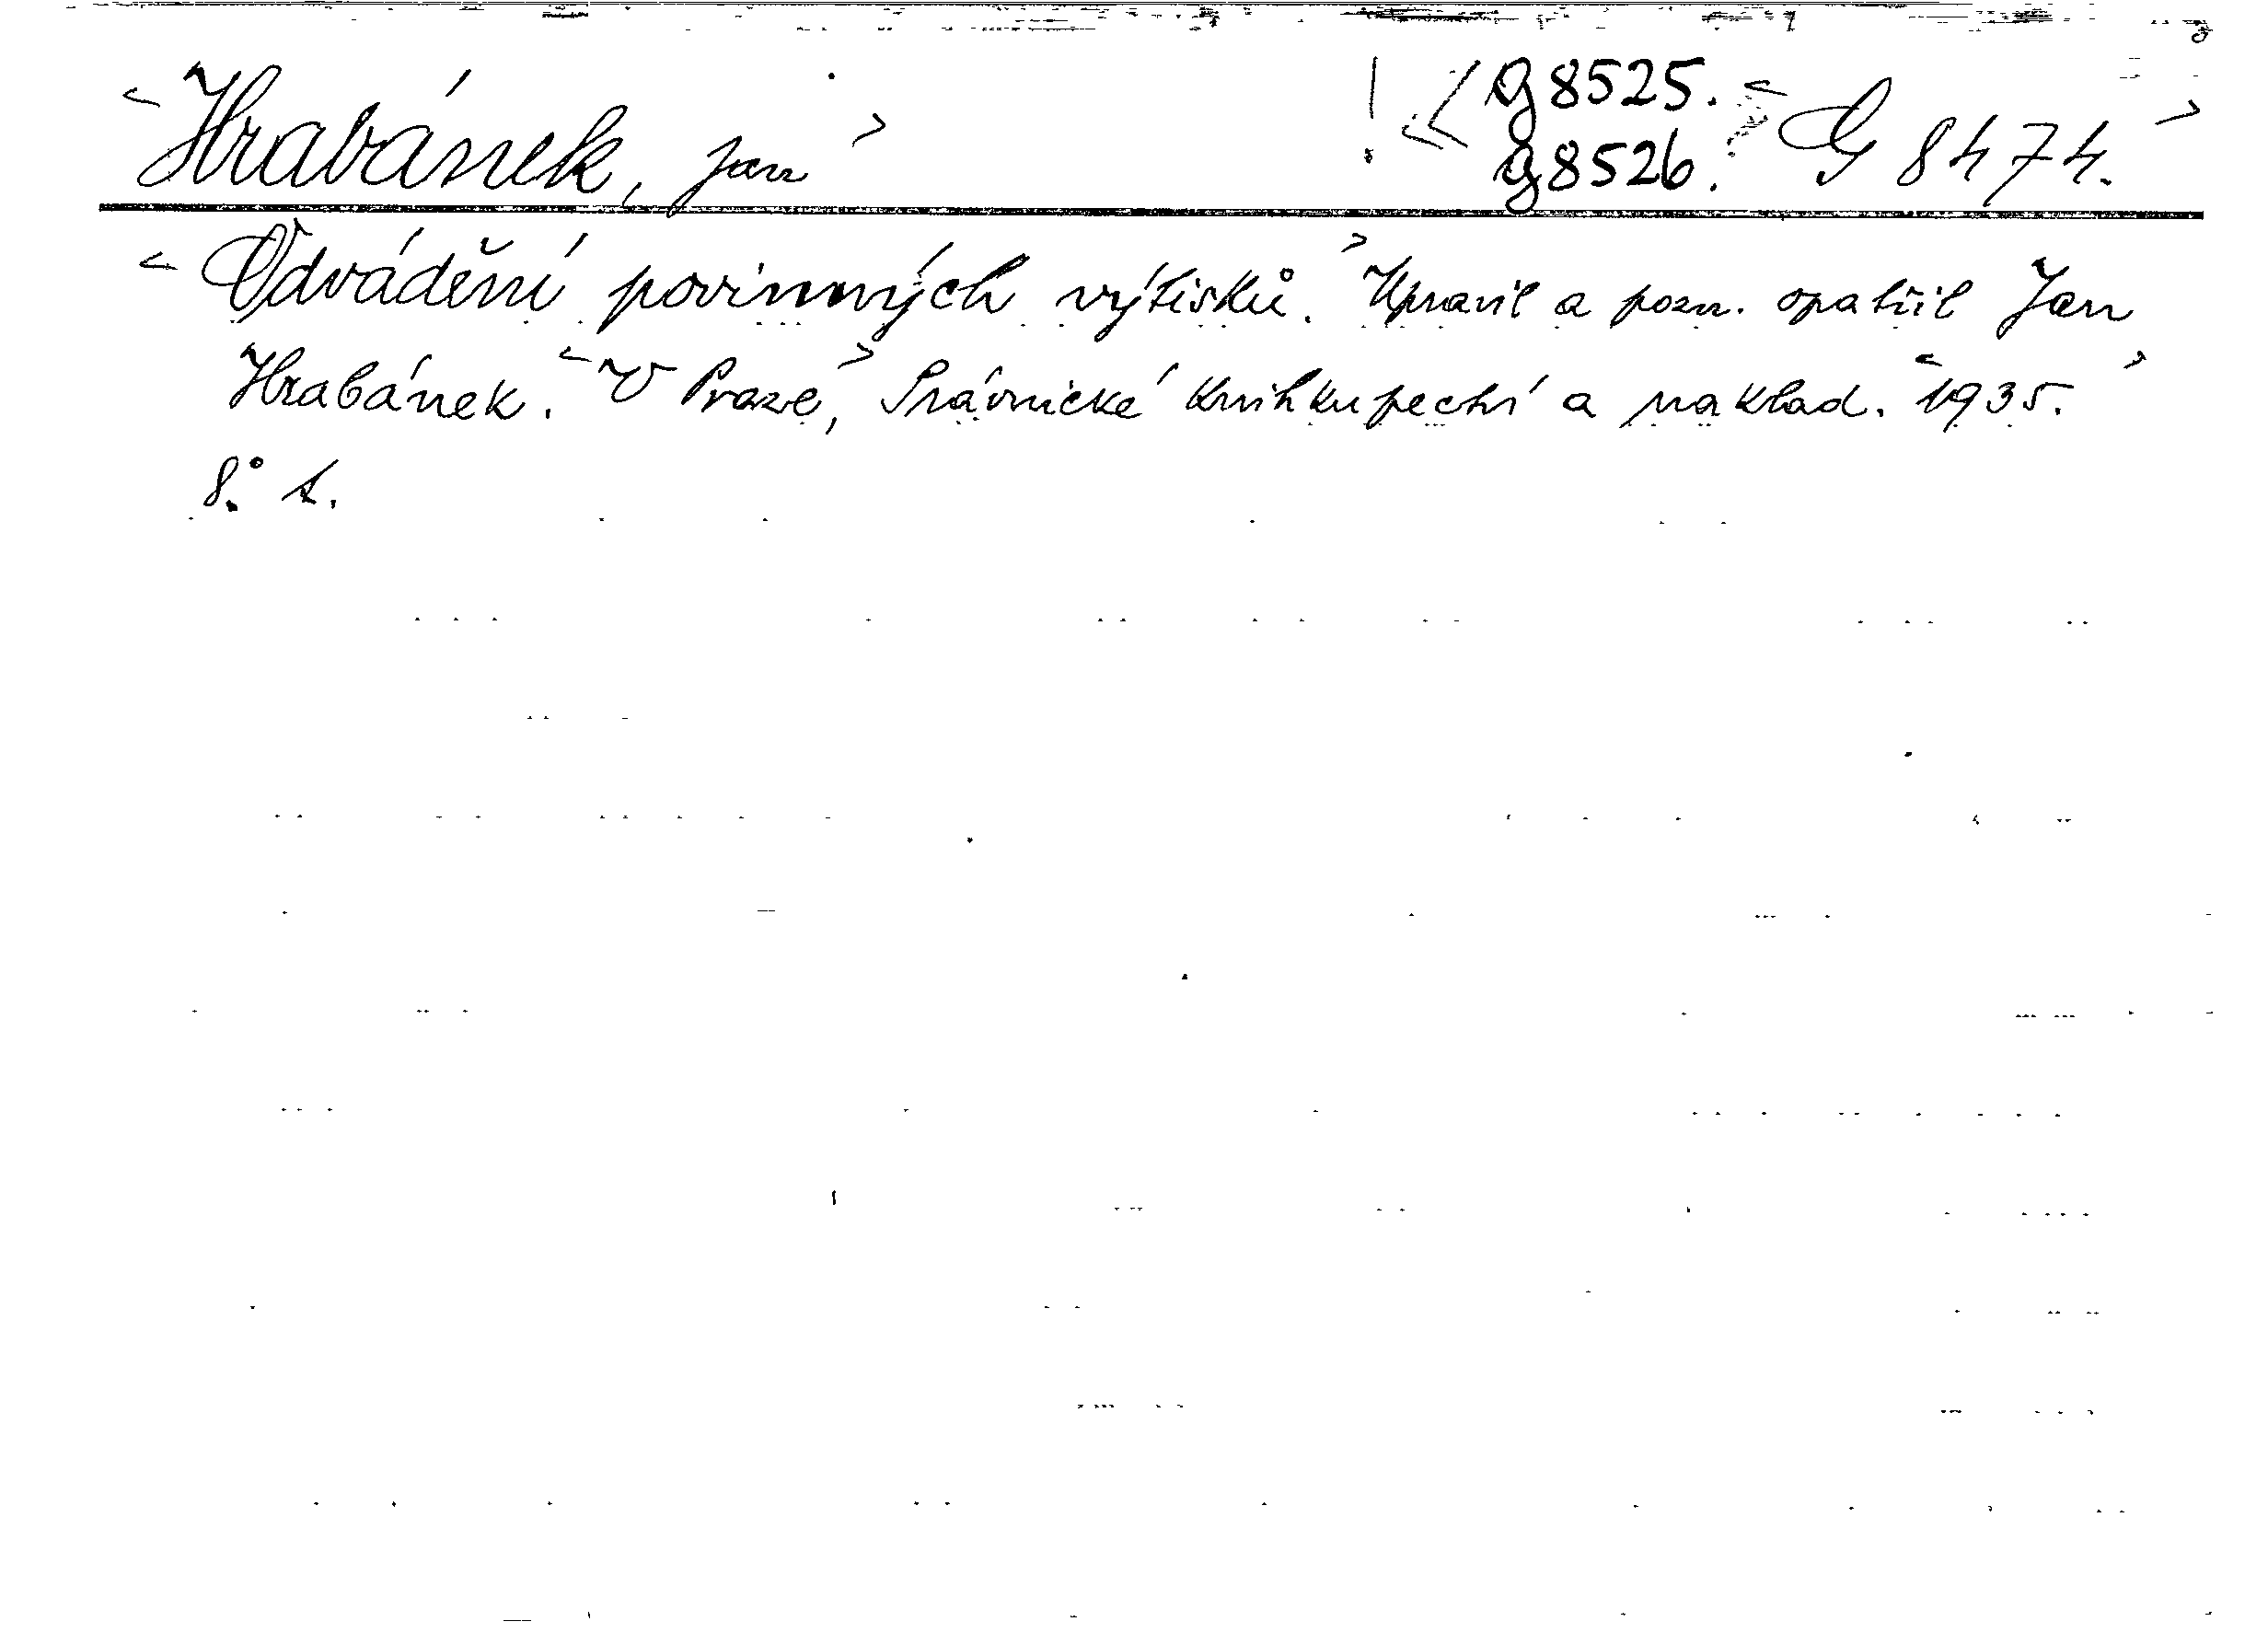 Hrabánek, Jan
G 8525.
G 8526. G 8474.
Odvádění povinných výtisků. Upravil a pozn. opatřil Jan
Hrabánek. V Praze, Právnické knihkupectví a naklad. 1935.
8.°